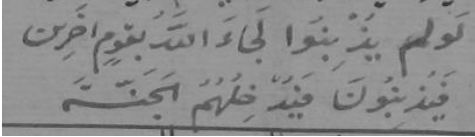 لَولم يَذْنِبُوا لَجَاءَ اللَّهُ بِقَومٍ آخَرِين
فَيُذنِبُونَ فَيُدْخِلُهُمُ الجَنَّةَ